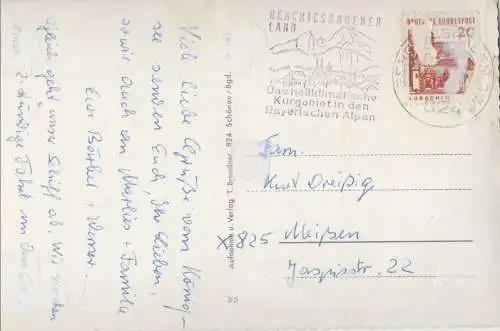 Viele liebe Grüße vom König-
see senden Euch, Ihr Lieben,
sowie auch an Marlies + Familie
Eure Bärbel + Werner.
geht unser Schiff ab. Wir machen
2-stündige Fahrt um
Aufnahme u. Verlag T. Brandner, 824 Schönau/Bgd.
BERCHTESGADENER
LAND
Das heilklimatische
Kurgebiet in den
Bayerischen Alpen
DEUTSCHE BUNDESPOST
20
LORSCH
824
Fam.
Kurt Dreißig
X 825 Meißen
Jaspisstr. 22